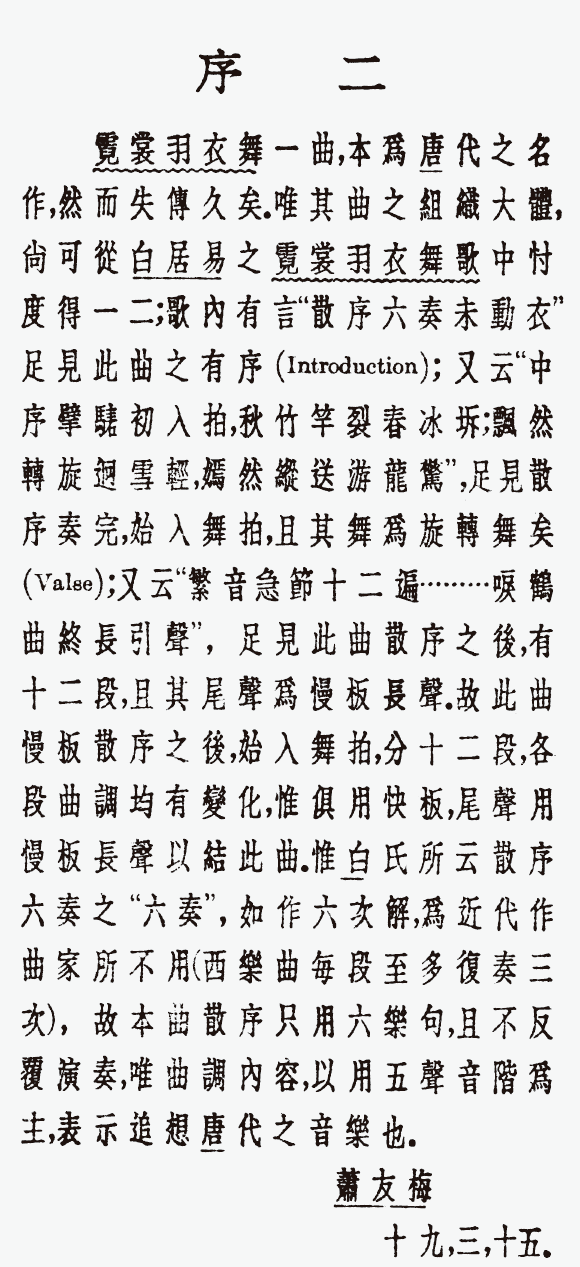 序 二
霓裳羽衣舞一曲,本爲唐代之名
作,然而失傳久矣.唯其曲之組織大體,
尙可從白居易之霓裳羽衣舞歌中忖
度得一二;歌內有言“散序六奏未動衣”
足見此曲之有序(Introduction);又云“中
序擘騞初入拍,秋竹竿裂春冰坼;飄然
轉旋迴雪輕,嫣然縱送游龍驚”,足見散
序奏完,始入舞拍,且其舞爲旋轉舞矣
(Valse);又云“繁音急節十二遍………唳鶴
曲終長引聲”, 足見此曲散序之後,有
十二段,且其尾聲爲慢板長聲.故此曲
慢板散序之後,始入舞拍,分十二段,各
段曲調均有變化,惟俱用快板,尾聲用
慢板長聲以結此曲.惟白氏所云散序
六奏之“六奏”,如作六次解,爲近代作
曲家所不用(西樂曲每段至多復奏三
次), 故本曲散序只用六樂句,且不反
覆演奏,唯曲調內容,以用五聲音階爲
主,表示追想唐代之音樂也.
蕭友梅
十九,三,十五.